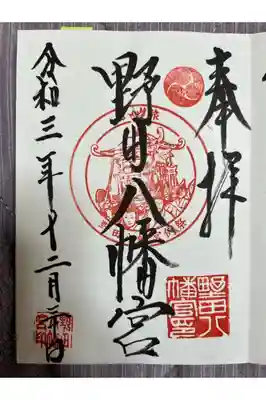 奉拝
野田八幡宮
令和三年十二月
野田八
幡宮印